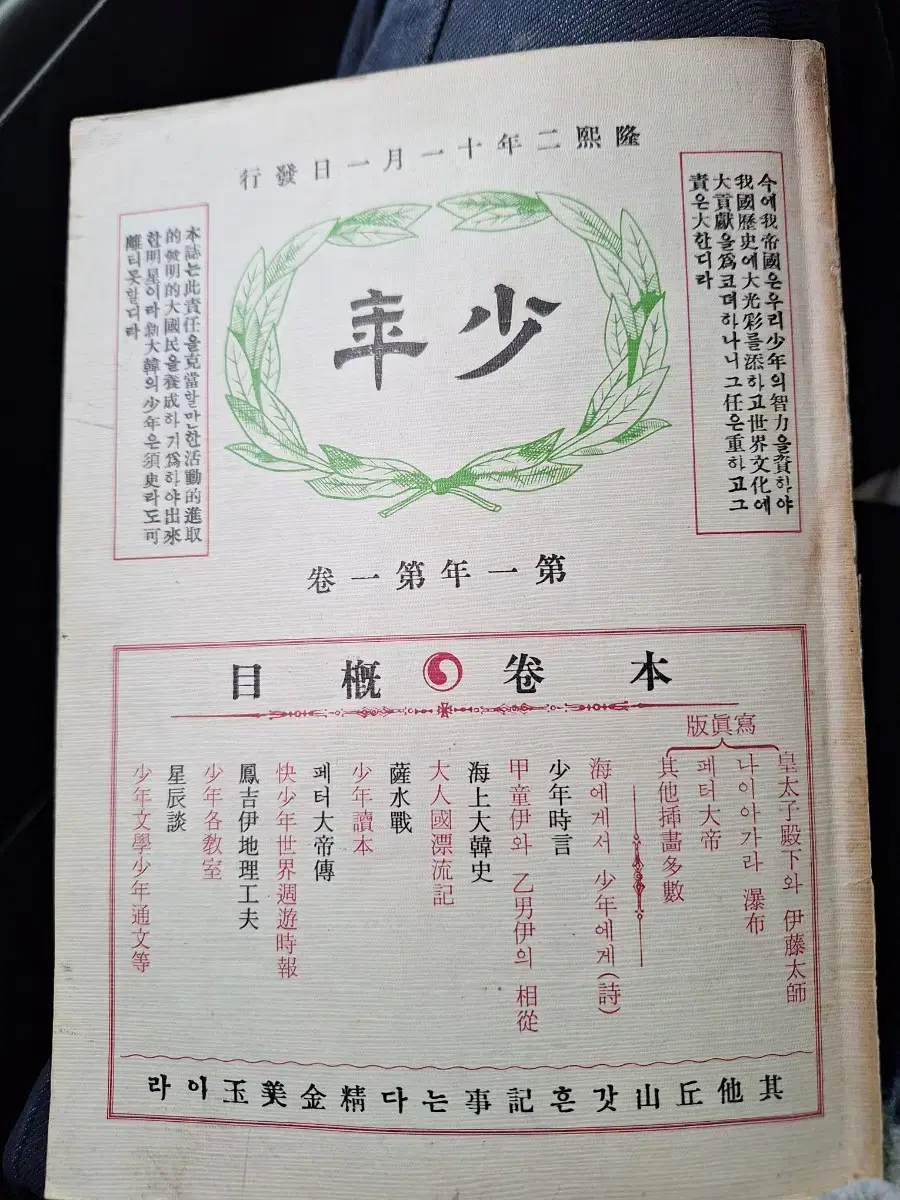 隆熙二年十一月一日發行
今에我帝國은우리少年의智力을資하야
我國歷史에大光彩를添하고世界文化에
大貢獻을爲코뎌하나니그任은重하고그
責은大한디라
少年
本誌는此責任을克當할만한活動的進取
的發明的大國民을養成하기爲하야出來
한明星이라新大韓의少年은須臾라도可
離티못할디라
第一年第一卷
本卷槪目
寫眞版
皇太子殿下와 伊藤太師
나이아가라 瀑布
페터大帝
其他揷畵多數
海에게서 少年에게(詩)
少年時言
甲童伊와 乙男伊의 相從
海上大韓史
大人國漂流記
薩水戰
少年讀本
페터大帝傳
快少年世界週遊時報
鳳吉伊地理工夫
少年各敎室
星辰談
少年文學少年通文等
其他丘山갓흔記事는다精金美玉이라